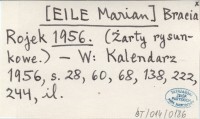 [EILE Marian] Bracia
Rojek 1956. (Żarty rysun-
kowe.) – W: Kalendarz
1956, s. 28, 60, 68, 138, 222,
244, il.